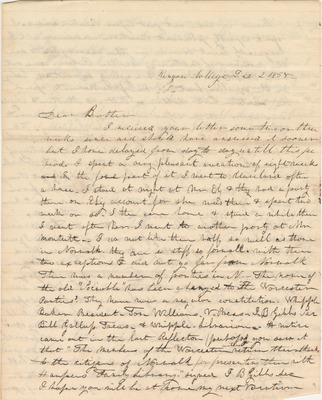 Kenyon College Dec 2 1858
Dear Brother
I received your letter some two or three
weeks since and should have answered it sooner
but I have delayed from day to day until this pe
riod. I spent a very pleasant vacation of eight weeks
and in the fore part of it I went to
a lace. I staid at night at Mr. & they had a party
there on my account for she
week or so. I then came home & staid a while then
I went after her. I went to another party at Mrs
I do not like them half so well as those
in Norwalk they are so stiff & formal with the
two exceptions I did not go far from Norwalk
There was a number of parties in N. The name of
the old "Sociable" has been changed to the Worcester
Parties. They have now a regular constitution. Whipple
Baker President Tom Williams V. Presd. J. B. Gibbs Sec
Bill Gallup Treas. & Whipple Librarian. A notice
came out in the last Reflector perhaps you saw it
that "The members of the Worcester return their thanks
to the citizens of Norwalk for presenting them with
Harpers Family Library" signed J. B. Gibbs Sec
I hope you will be at home my next vacation